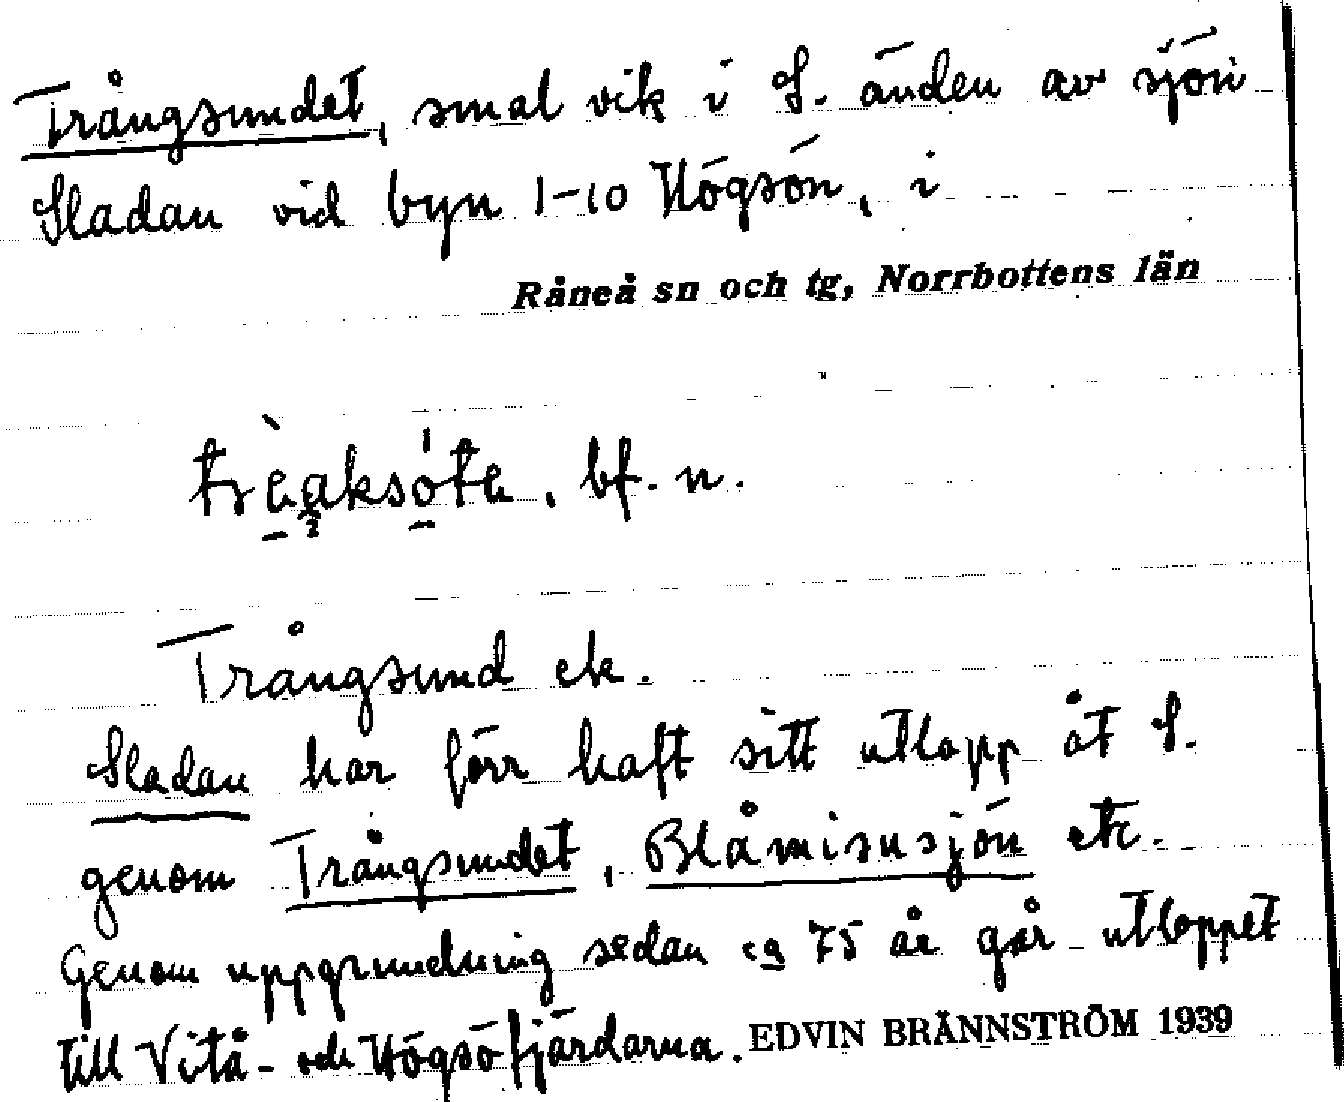 Trångsundet, smal vik i S. änden av sjön
Sladan vid byn 1-10 Högsön, i
Råneå sn och tg, Norrbottens län
bf. n.
Trångsund ek.
Sladan har förr haft sitt utlopp åt S.
genom Trångsundet, Blåmisusjön etc.
Genom uppgrundning sedan ca 75 år går utloppet
till Vitå- och Högsöfjärdarna. EDVIN BRÄNNSTRÖM 1939